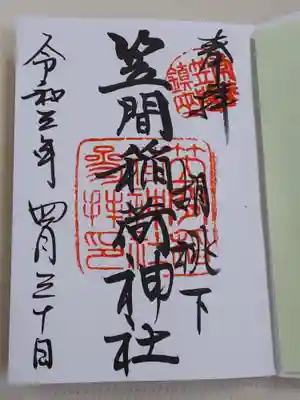 奉拝
胡桃下
笠間稲荷神社
令和三年 四月三十日